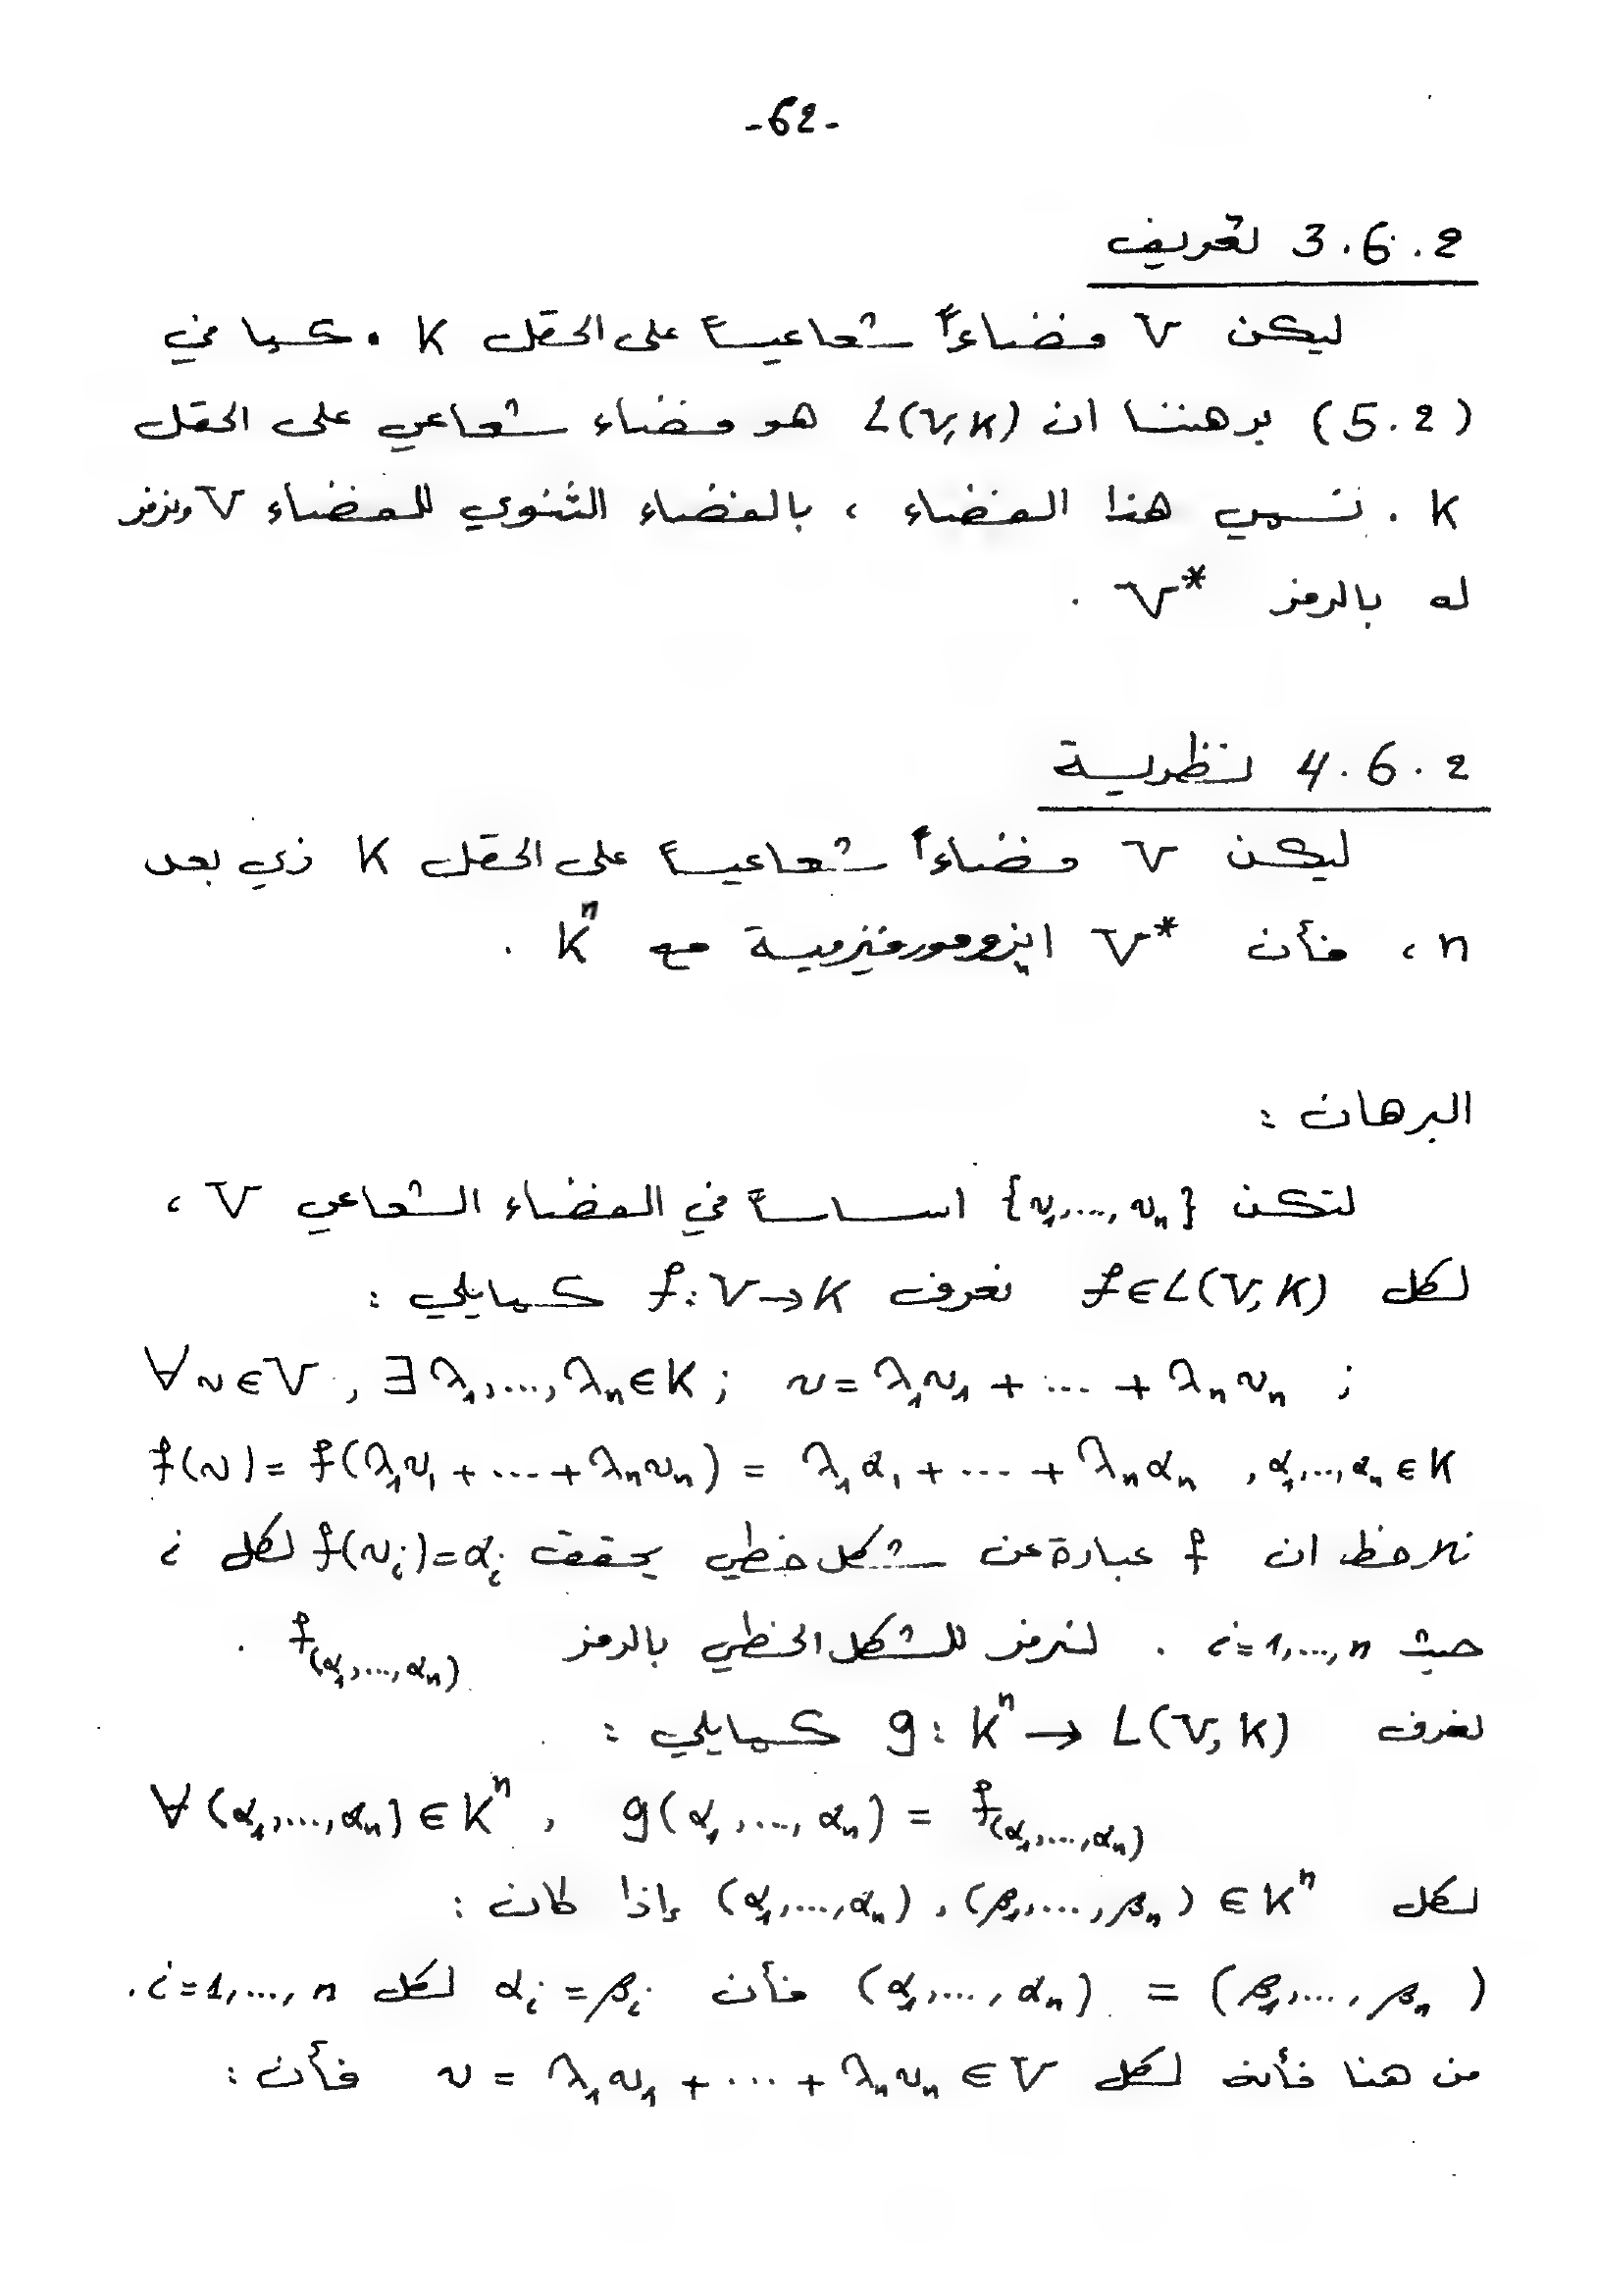 -62-
3.6.2 تعريف
ليكن V فضاءاً شعاعياً على الحقل K . كما في
(5.2) برهننا ان L(V,K) هو فضاء شعاعي على الحقل
K . نسمي هذا الفضاء ، بالفضاء الثنوي للفضاء V ونرمز
له بالرمز V* .
4.6.2 نظرية
ليكن V فضاءاً شعاعياً على الحقل K ذي بعد
n ، فأن V* ايزومورفيزمية مع Kⁿ .
البرهان :
لتكن {v₁,...,vₙ} اساساً في الفضاء الشعاعي V ،
لكل f∈L(V,K) نعرف f:V→K كمايلي :
∀v∈V , ∃λ₁,...,λₙ∈K ; v=λ₁v₁+...+λₙvₙ ;
f(v)=f(λ₁v₁+...+λₙvₙ)=λ₁α₁+...+λₙαₙ , α₁,...,αₙ∈K
نلاحظ ان f عبارة عن شكل خطي يحقق f(vᵢ)=αᵢ لكل i
حيث i=1,...,n . لنرمز للشكل الخطي بالرمز f₍α₁,...,αₙ₎ .
لنعرف g:Kⁿ→L(V,K) كمايلي :
∀(α₁,...,αₙ)∈Kⁿ , g(α₁,...,αₙ)=f₍α₁,...,αₙ₎
لكل (α₁,...,αₙ),(β₁,...,βₙ)∈Kⁿ إذا كان :
(α₁,...,αₙ)=(β₁,...,βₙ) فأن αᵢ=βᵢ لكل i=1,...,n.
من هنا فأنه لكل v=λ₁v₁+...+λₙvₙ∈V فأن :